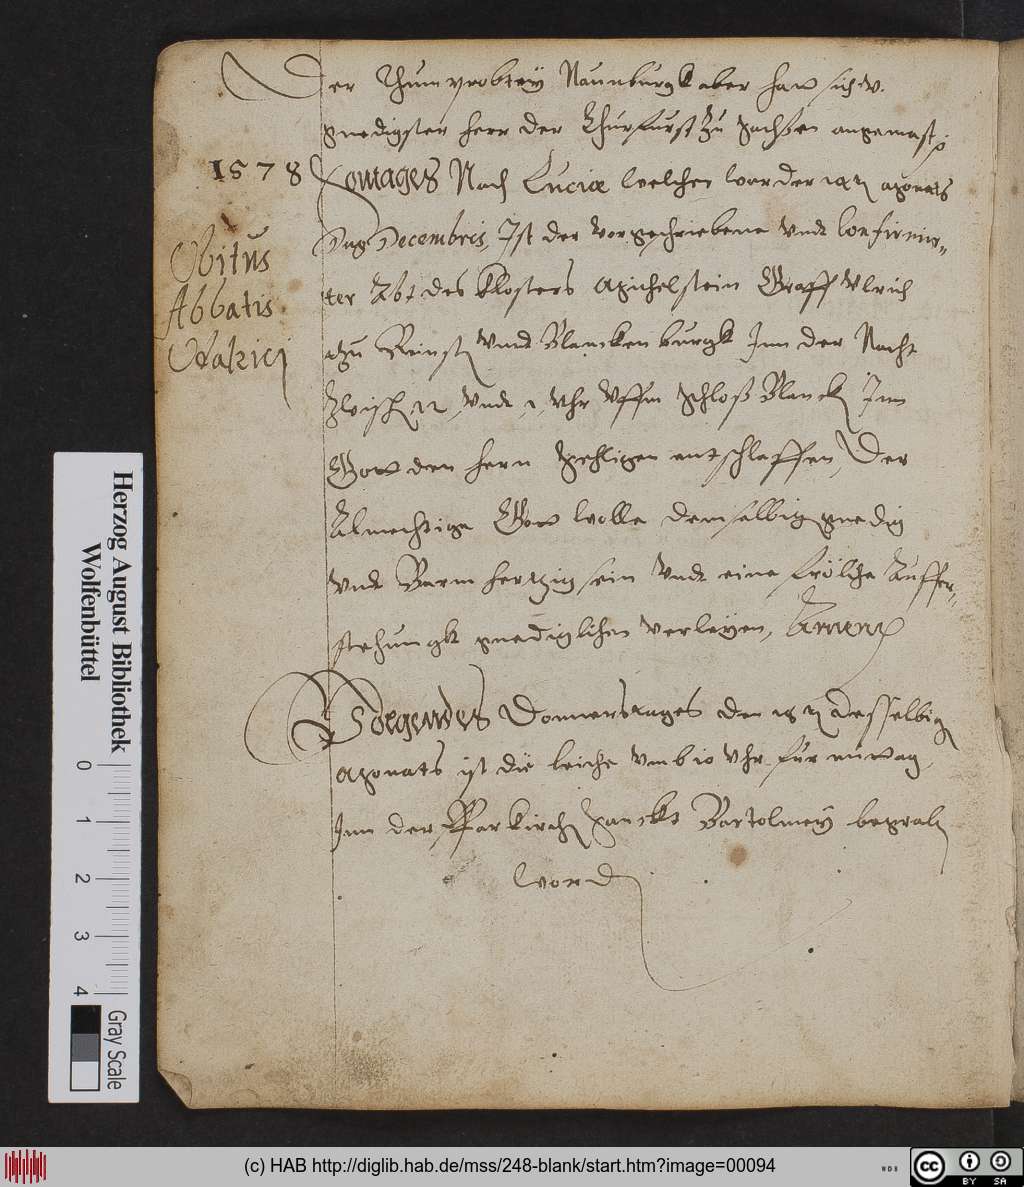 Der Thumprobtey Naumburgk aber hatt sich d.
gnedigster herr der Churfurst zu Sachßen angemast.
1578 Sontages Nach Luciæ welcher war der 14 Monats
Tag Decembris, Ist der vorgeschriebene vnd Confirmir-
Obitus
Abbatis
Vdalrici
ter Abt des klosters Michelstein Graff Vlrich
zu Reinst. vnd Blanckenburgk Inn der Nacht
Zwisch. 12 vnd 1 vhr vffm Schloß Blanck. Inn
Gott den hern Sehligen entschlaffen, Der
Almechtige Gott wolle demselbig gnedig
vnd Barmhertzig sein vnd eine frölche Auffer-
stehungk gnediglichen verleyen, Amen
Volgendes Donnerstages den 18 desselbig
Monats ist die leiche vmb 10 vhr fur mittag
Inn der Pfarkirch Sanckt Bartolmey begrab
word
Herzog August Bibliothek
Wolfenbüttel
0 1 2 3 4
Gray Scale
(c) HAB http://diglib.hab.de/mss/248-blank/start.htm?image=00094
WDB
cc BY SA